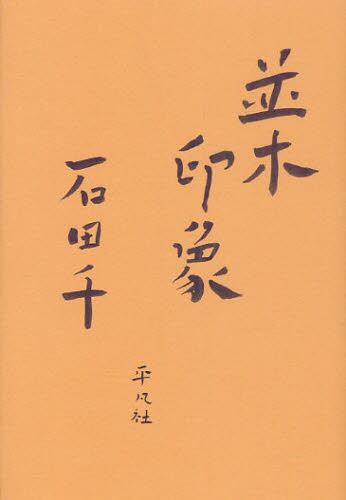 並木
印象
石田千
平凡社